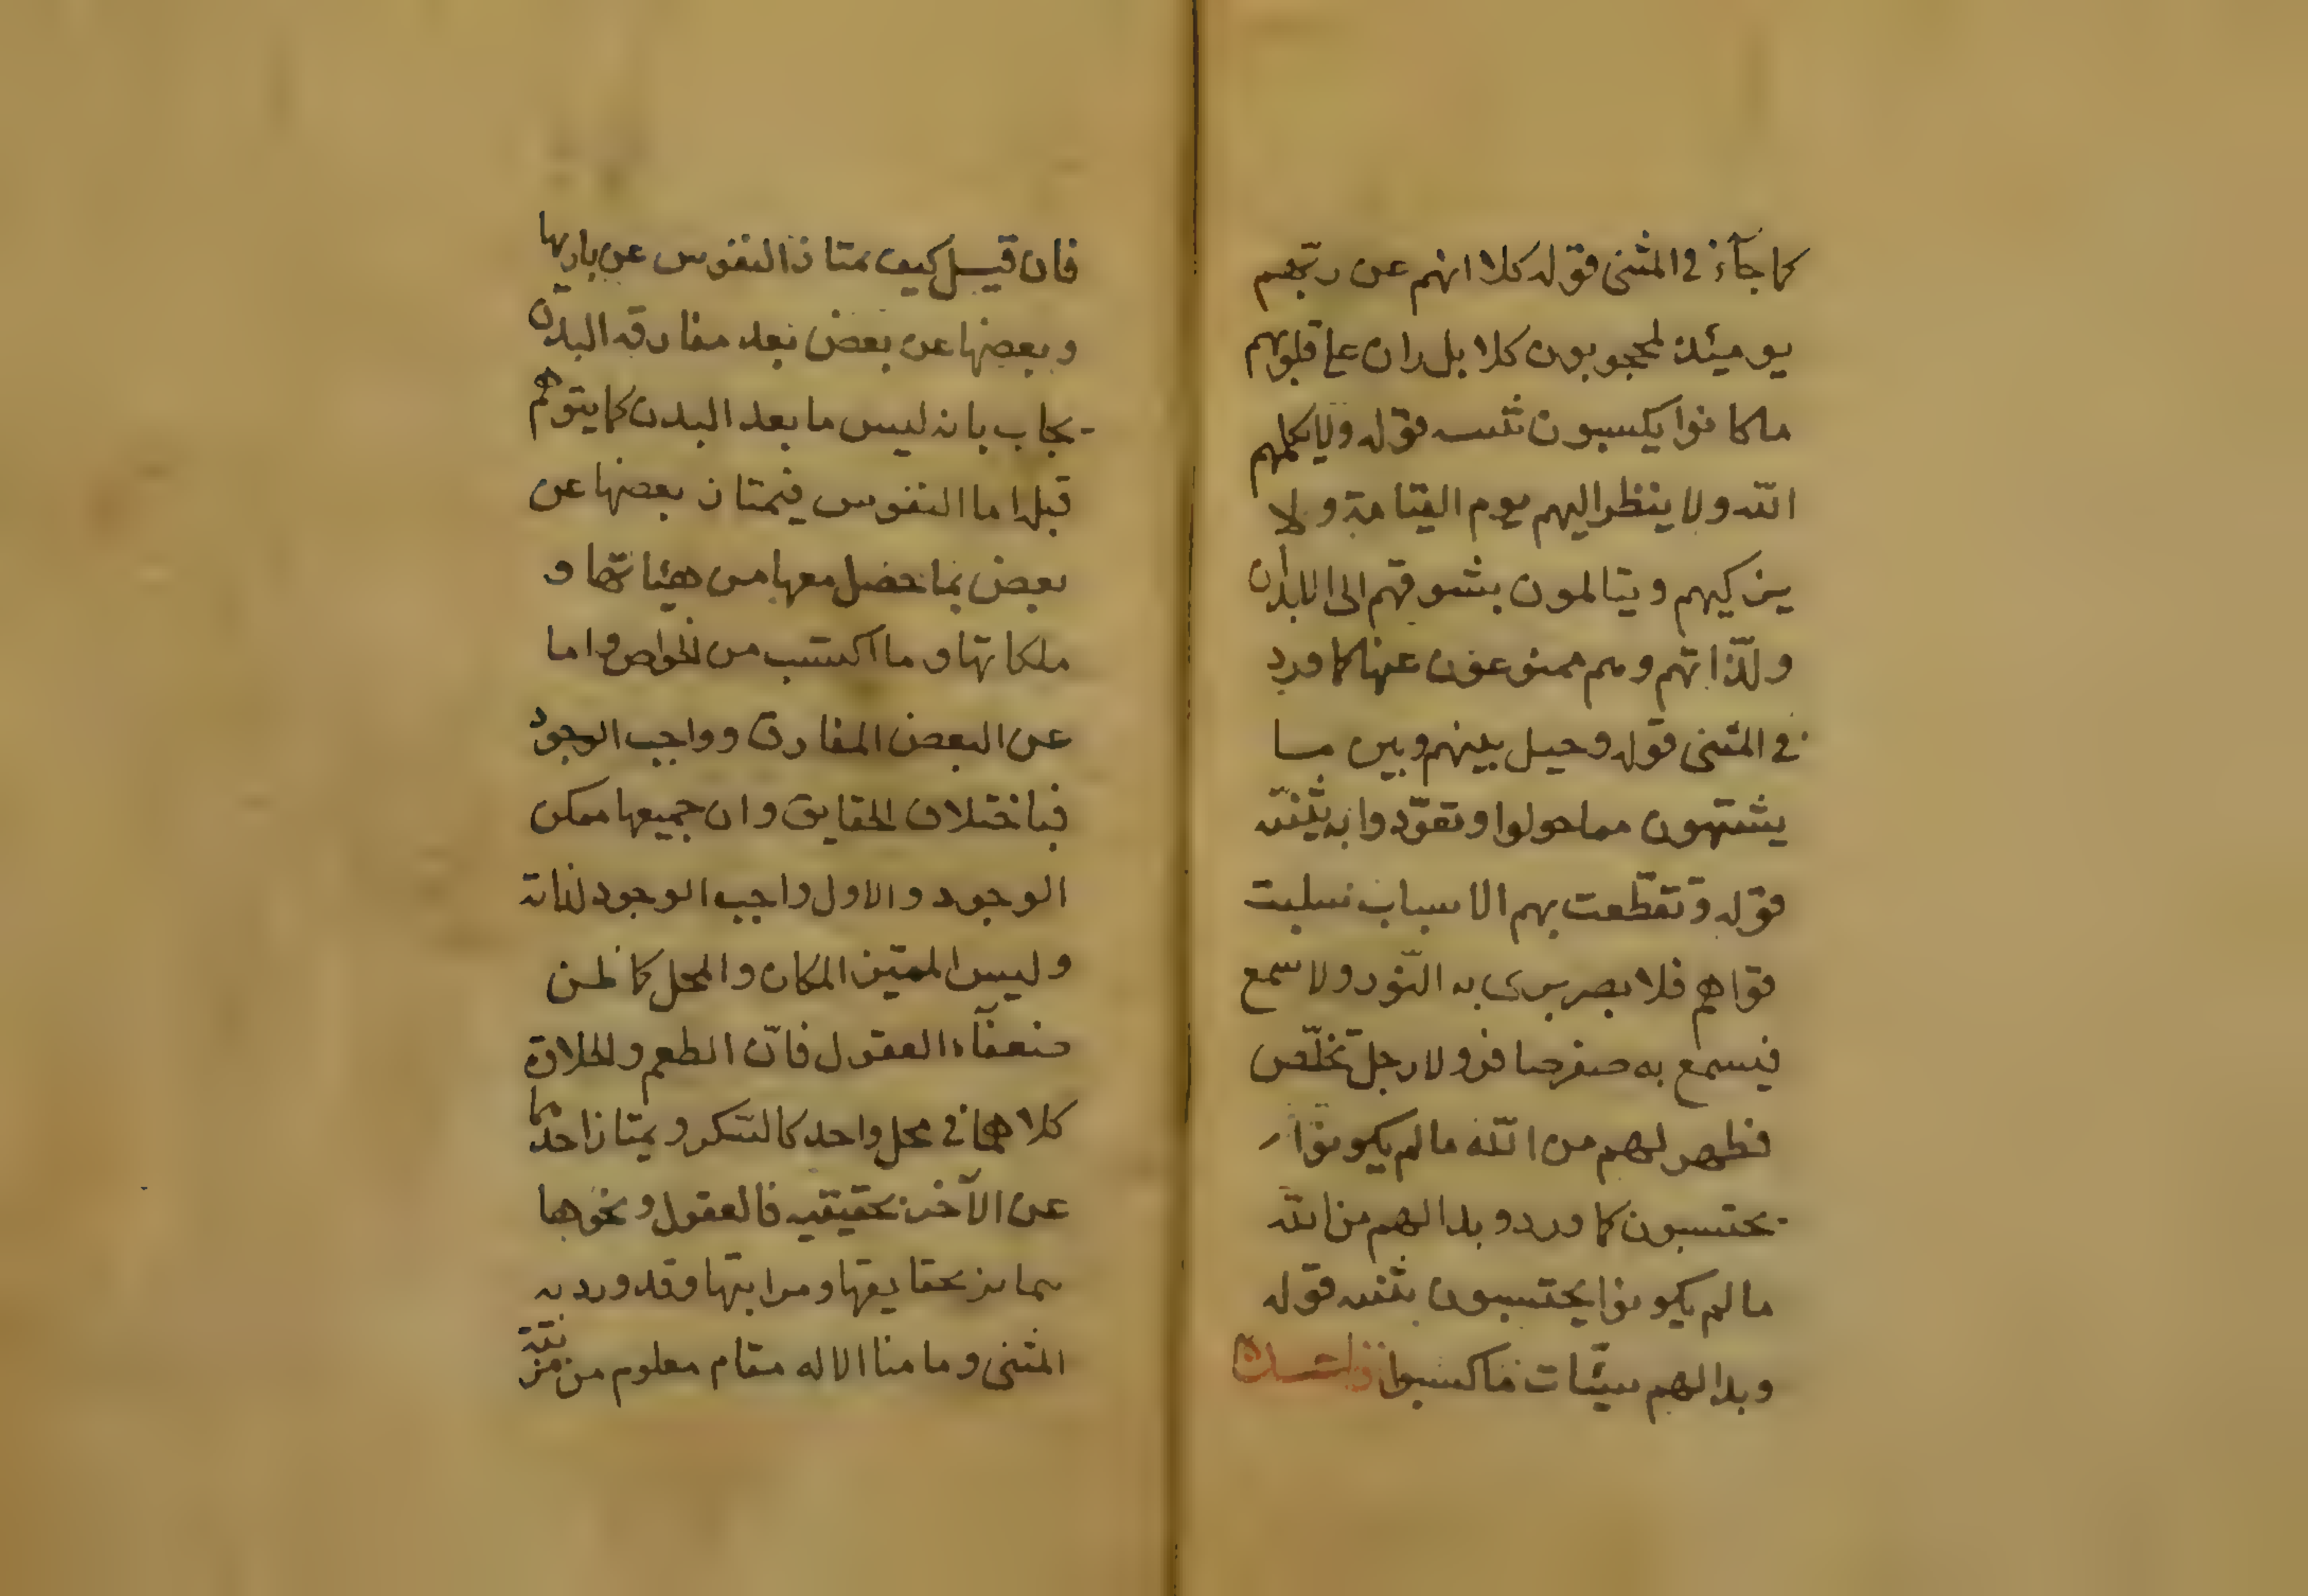 كما جآء في المثنى قوله كلا انهم عن ربّهم
يومئذ لمحجوبون كلا بل ران على قلوبهم
ماكانوا يكسبون قوله ولايكلمهم
الله ولا ينظر اليهم يوم القيامة ولا
يزكيهم ويتالمون بشوقهم الى الابدان
ولذّاتهم وهم ممنوعون عنها كما ورد
في المثنى قوله وحيل بينهم وبين ما
يشتهون مما حولوا وتعوّدوا به
قوله وتقطّعت بهم الاسباب سلبت
قواهم فلا بصر يرى به النّور ولا سمع
فيسمع به صفر صافر ولا رجل تخلّص
فظهر لهم من الله مالم يكونوا
يحتسبون كما ورد وبدا لهم من الله
مالم يكونوا يحتسبون قوله
وبدا لهم سيّئات ماكسبوا
فان قيل كيف تمتاز النفوس عن باريها
وبعضها عن بعض بعد مفارقة البدن
يجاب بانه ليس مابعد البدن كما يتوهم
قبل اما النفوس فيمتاز بعضها عن
بعض بما حصل معها من هيئاتها و
ملكاتها وما اكتسب من الخواص واما
عن البعض المفارق وواجب الوجود
فباختلاف الحقايق وان جميعها ممكن
الوجود والاول واجب الوجود لذاته
وليس المميّز المكان والمحل كما ظن
ضعفآء العقول فانّ الطعم والحلاوة
كلاهما في محل واحد كالسّكر ويمتاز احدهما
عن الآخر بحقيقته فالعقول ونحوها
تمايز بحقايقها ومراتبها وقد ورد به
المثنى وما منا الا له مقام معلوم من